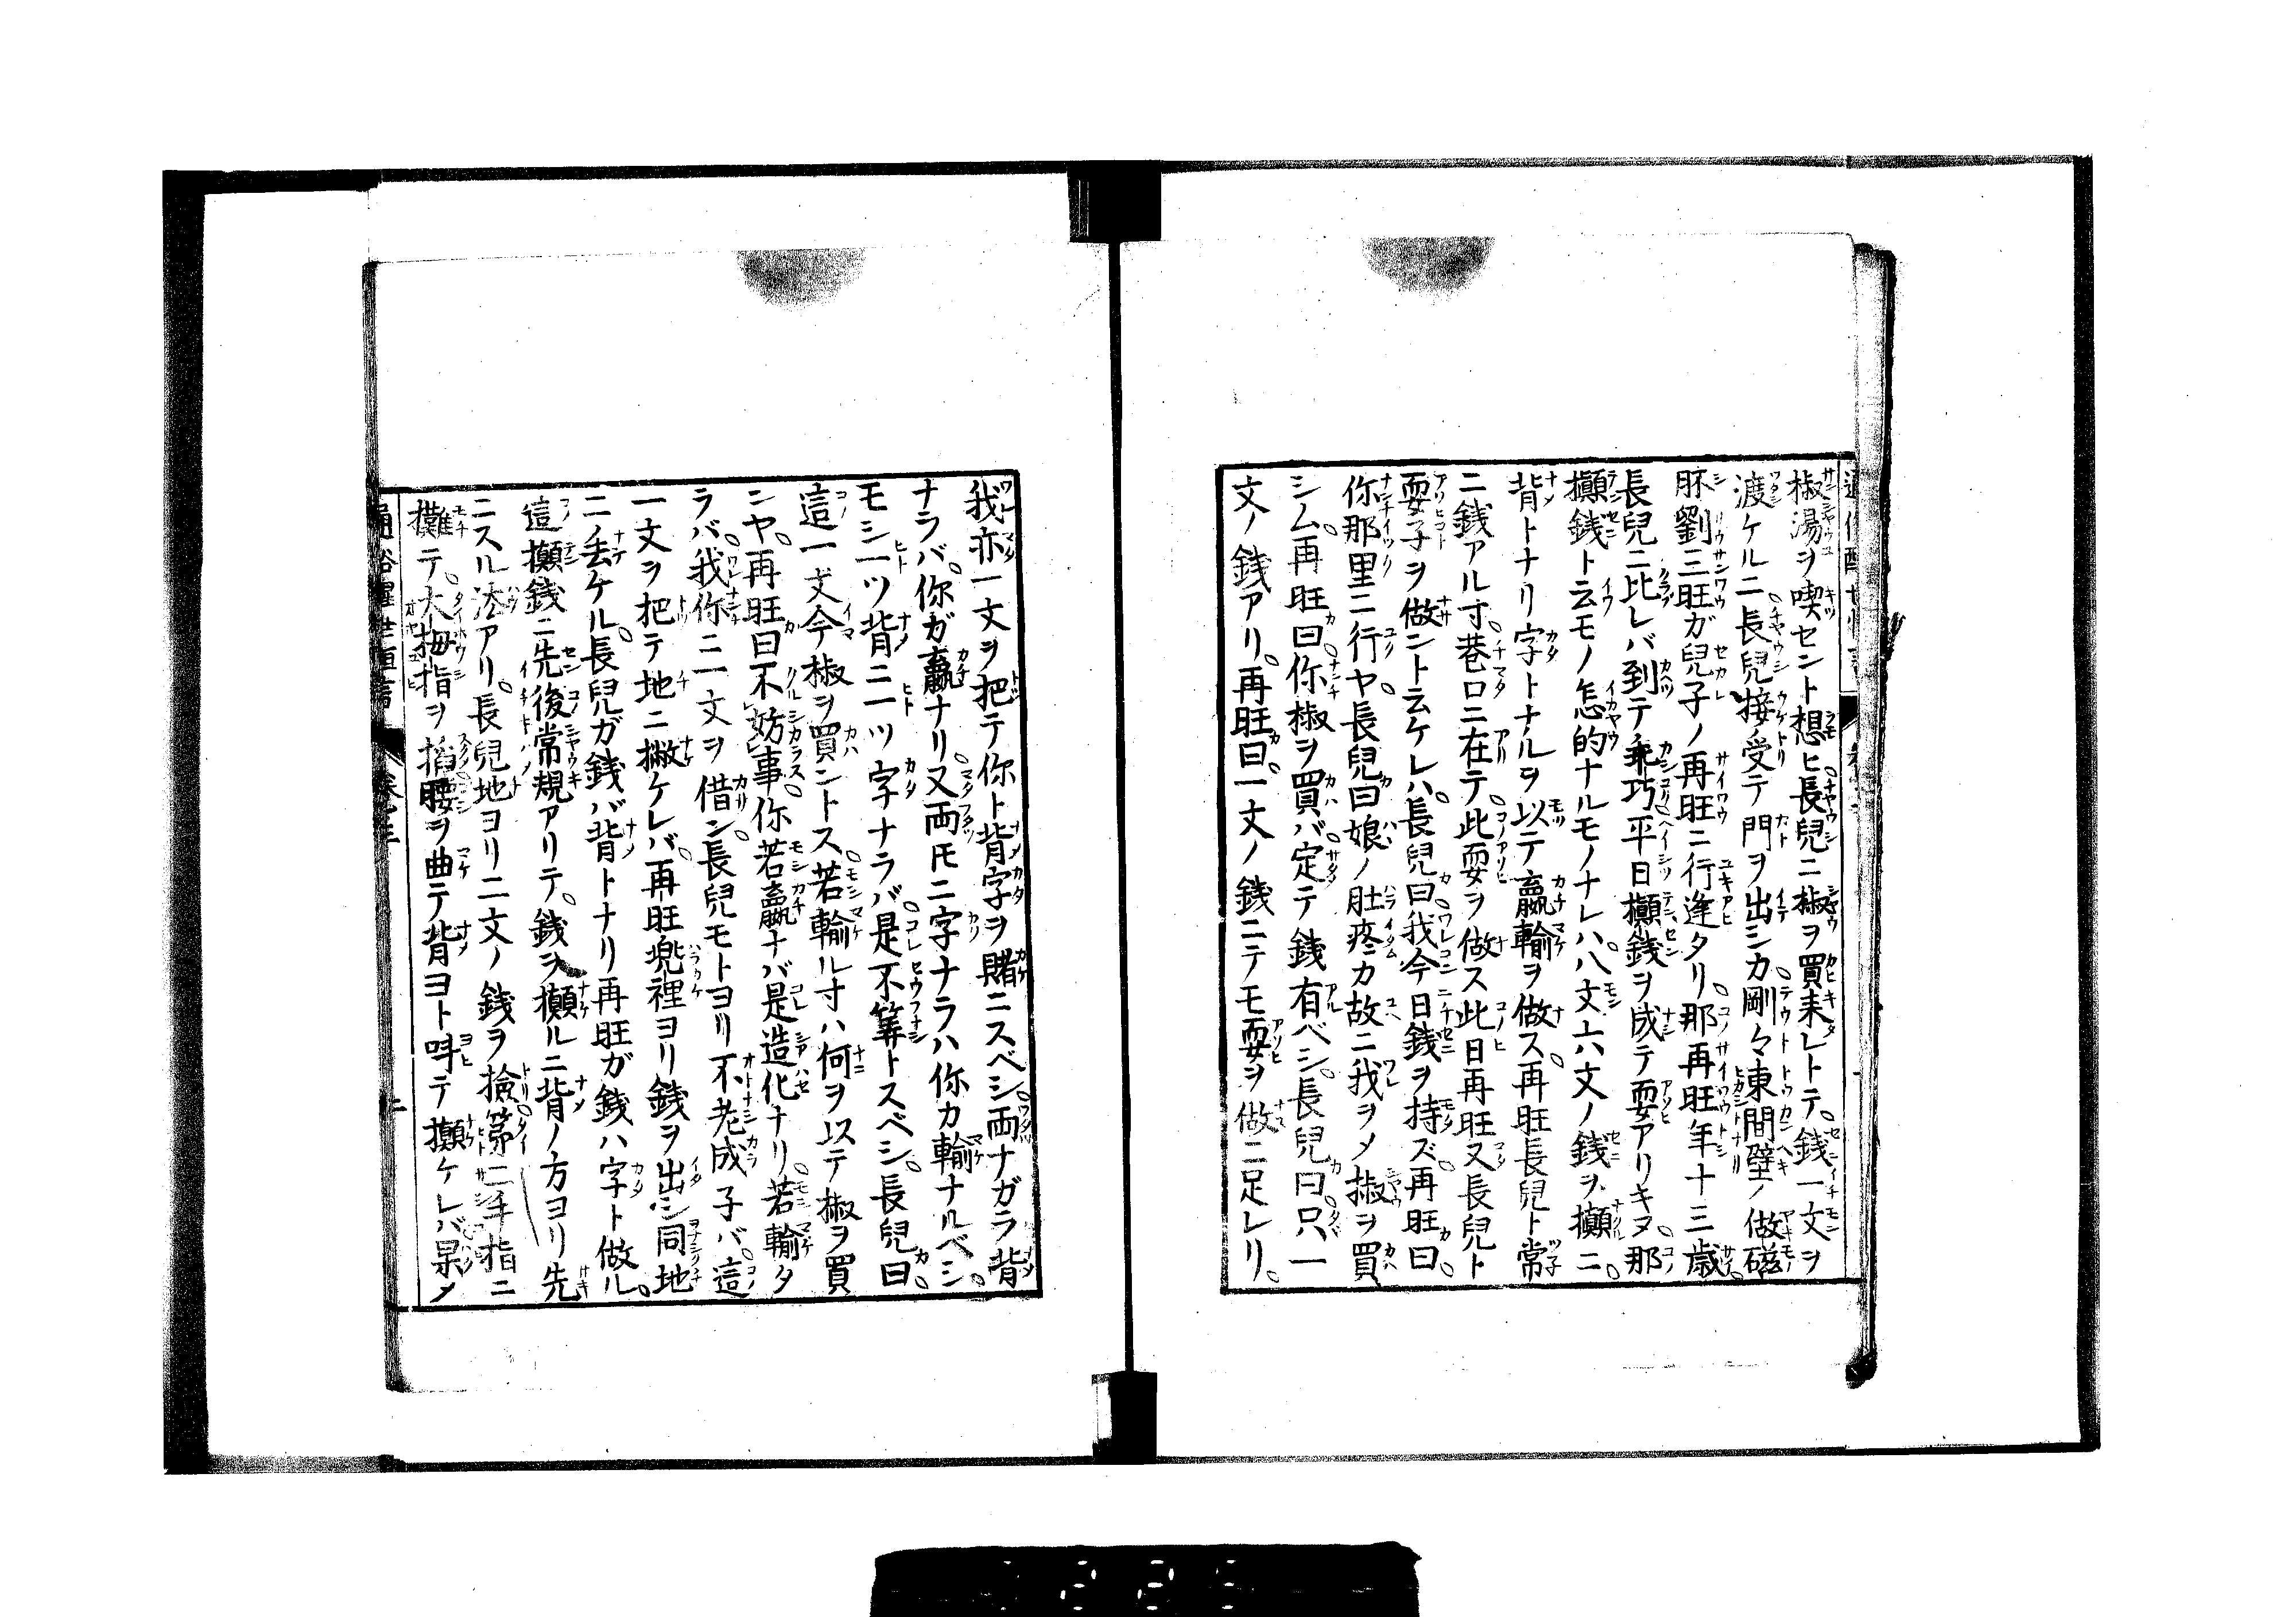 椒湯ヲ喫セント想ヒ長兒ニ椒ヲ買来レトテ。銭一文ヲ
渡ケルニ。長兒接受テ門ヲ出シカ。剛々東間壁ノ做磁
胚劉三旺ガ兒子ノ再旺ニ行逢タリ。那再旺年十三歳。
長兒ニ比レバ到テ乖巧。平日攧銭ヲ成テ耍アリキヌ。那
攧銭ト云モノ怎的ナルモノナレハ。八文六文ノ銭ヲ攧ニ。
背トナリ字トナルヲ以テ贏輸ヲ做ス。再旺長兒ト常
ニ銭アル寸。巷口ニ在テ。此耍ヲ做ス此日再旺又長兒ト
耍子ヲ做ント云ケレハ。長兒曰。我今日銭ヲ持ズ。再旺曰。
你那里ニ行ヤ。長兒曰娘ノ肚疼カ故ニ我ヲメ椒ヲ買
シム。再旺曰。你椒ヲ買バ。定テ銭有ベシ。長兒曰。只一
文ノ銭アリ。再旺曰。一文ノ銭ニテモ耍ヲ做ニ足レリ。
我亦一文ヲ把テ你ト背字ヲ賭ニスベシ。両ナガラ背
ナラバ。你ガ贏ナリ。又両モニ字ナラハ你カ輸ナルベシ。
モシ一ツ背ニ一ツ字ナラバ。是不筭トスベシ。長兒曰。
這一文今椒ヲ買ントス。若輸ル寸ハ何ヲ以テ椒ヲ買
ンヤ。再旺曰不妨事。你若贏ナバ是造化ナリ。若輸タ
ラバ。我你ニ一文ヲ借ン。長兒モトヨリ不老成子バ。這
一文ヲ把テ地ニ撇ケレバ。再旺兜裡ヨリ銭ヲ出シ同地
ニノ丢ケル。長兒ガ銭バ背トナリ再旺ガ銭ハ字ト做ル。
這攧銭ニ先後常規アリテ。銭ヲ攧ルニ背ノ方ヨリ先
ニスル法アリ。長兒地ヨリ二文ノ銭ヲ撿。第二手指ニ
攤テ。大拇指ヲ掐。腰ヲ曲テ背ヨト呌テ攧ケレバ。果メ
通俗醒世恒言 巻之三